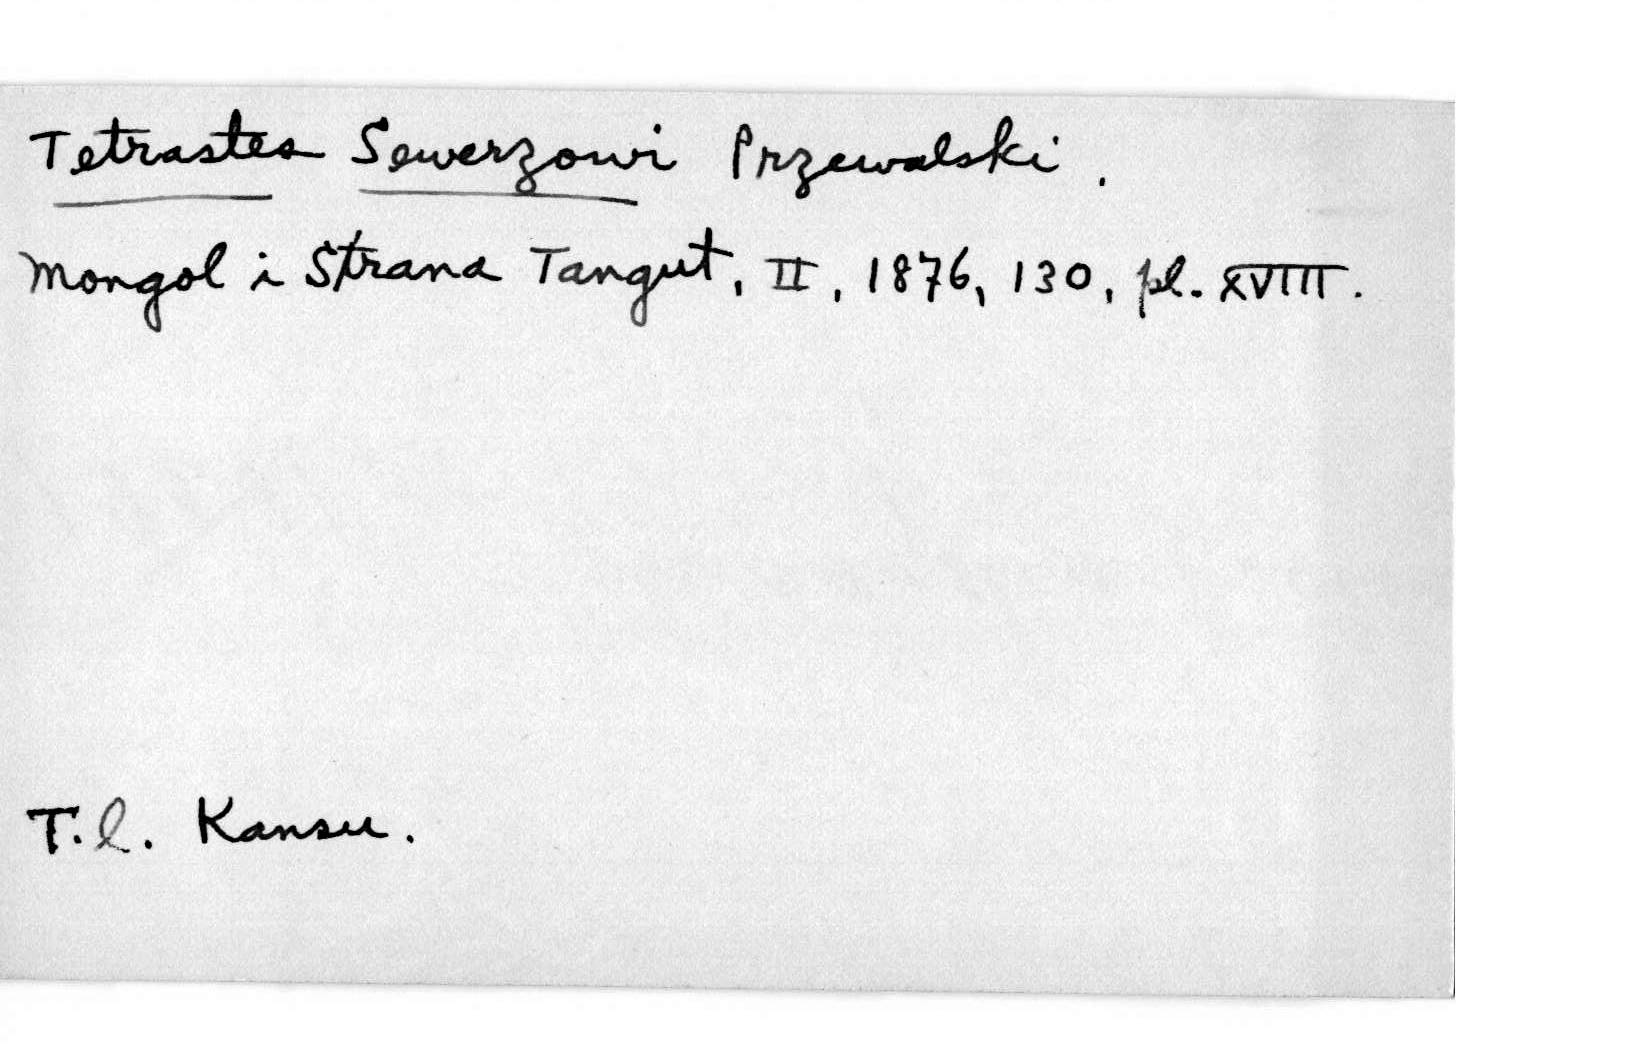 Tetrastes Sewerzowi Przewalski.
Mongol i Strana Tangut, II, 1876, 130, pl. XVIII.
T.l. Kansu.